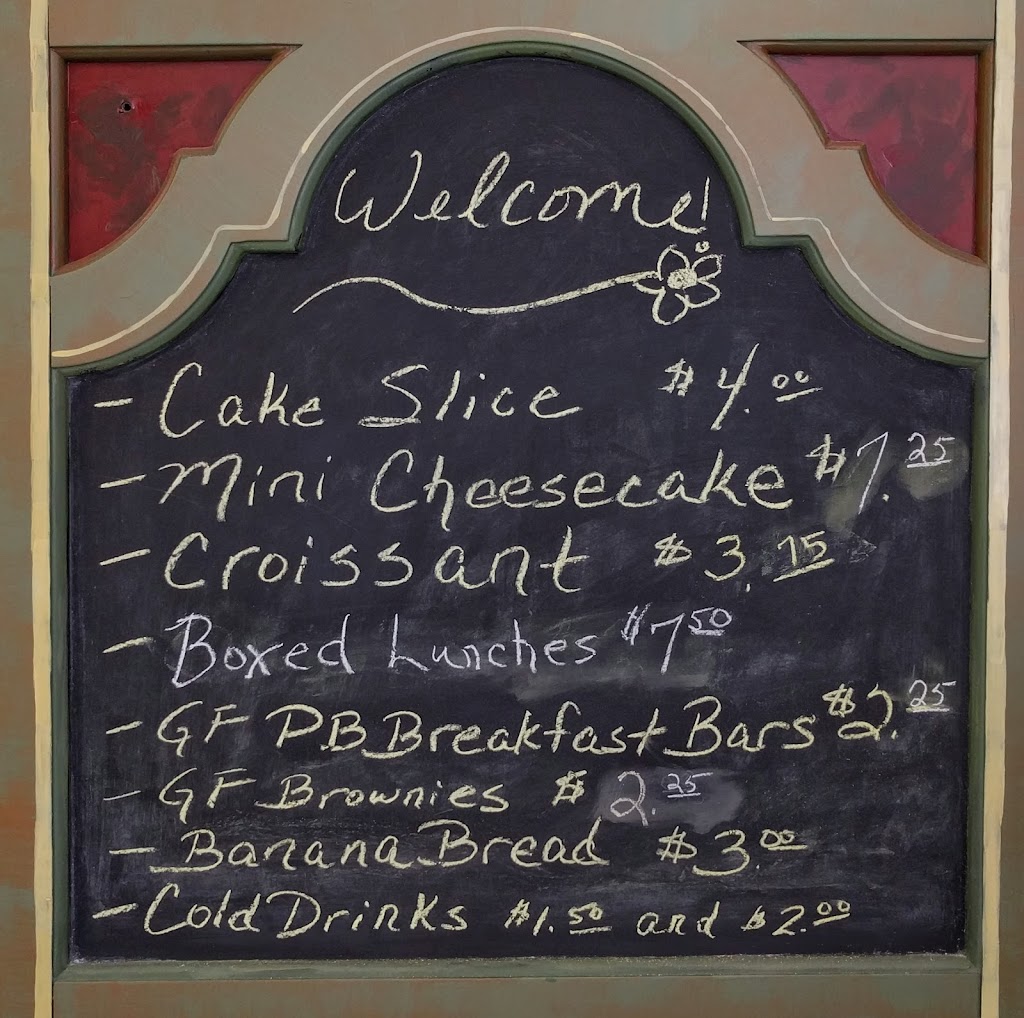 Welcome!
- Cake Slice $4.00
- Mini Cheesecake $7.25
- Croissant $3.75
- Boxed Lunches $7 50
- GF PB Breakfast Bars $2.25
- GF Brownies $2.25
- Banana Bread $3.00
- Cold Drinks $1.50 and $2.00